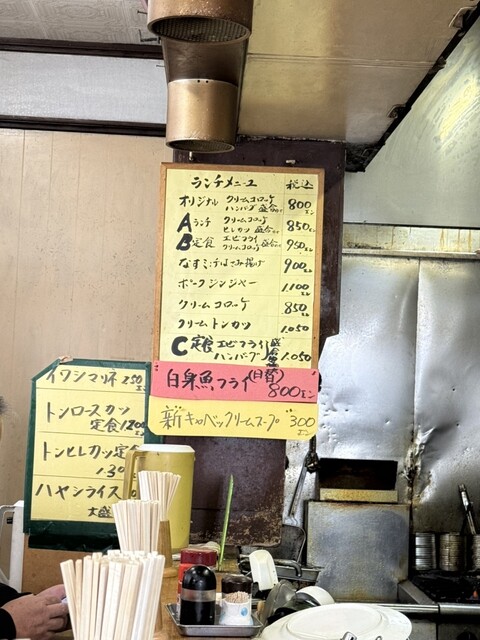 ランチメニュー 税込
オリジナル クリームコロッケ
ハンバーグ 盛合せ 800エン
Aランチ クリームコロッケ
ヒレカツ 盛合せ 850エン
B定食 エビフライ
クリームコロッケ 盛合せ 950エン
なすミンチはさみ揚げ 900エン
ポークジンジャー 1.100エン
クリームコロッケ 850エン
クリームトンカツ 1.050
C定食 エビフライ
ハンバーグ 1.050エン
白身魚フライ(日替) 800エン
新 キャベツクリームスープ 300エン
イワシマリネ 250エン
トンロースカツ
定食 120
トンヒレカツ定食
1.30
ハヤシライス
大盛